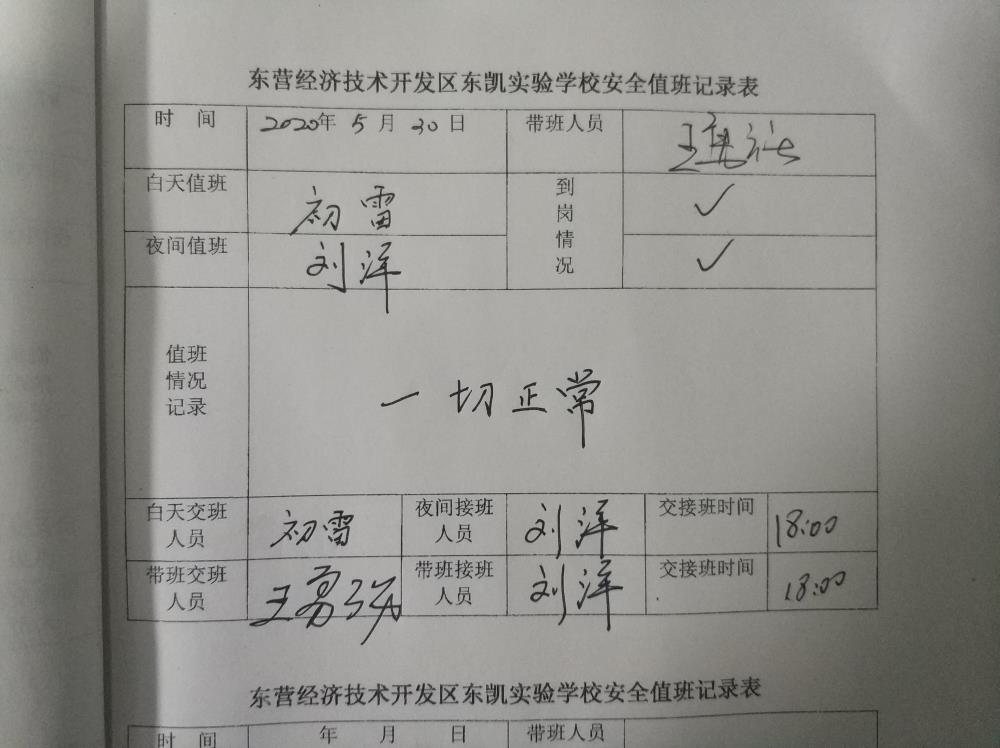 东营经济技术开发区东凯实验学校安全值班记录表
时 间 2020年 5 月 30 日 带班人员 王
白天值班 初雷 到岗情况 ✓
夜间值班 刘洋 ✓
值班情况记录 一切正常
白天交班人员 初雷 夜间接班人员 刘洋 交接班时间 18:00
带班交班人员 王 带班接班人员 刘洋 交接班时间 18:00
东营经济技术开发区东凯实验学校安全值班记录表
时 间 年 月 日 带班人员